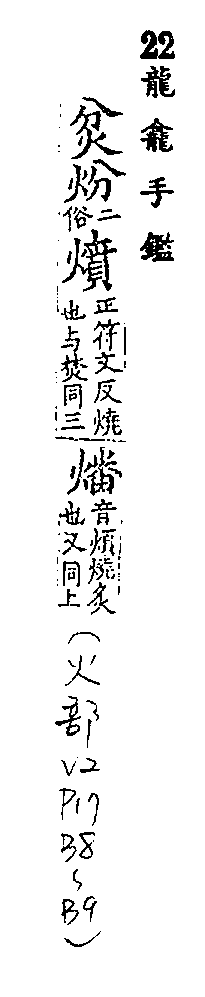 22 龍龕手鑑
炃二俗燌正符文反燒也与焚同三燔音煩燒炙也又同上（火部V2P17B8~B9）